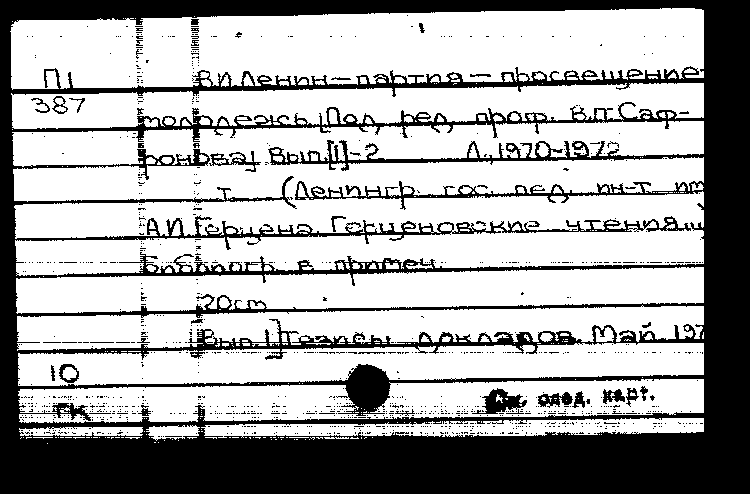 П1 В.И.Ленин—партия—просвещение-
387 молодежь. [Под ред. проф. В.П.Саф-
ронова] Вып.[1]-2 Л., 1970-1972
т. (Ленингр. гос. пед. ин-т им
А.И.Герцена. Герценовские чтения...)
Библиогр. в примеч.
20см
[Вып.1] Тезисы докладов. Май 197
10
ГК См. след. карт.